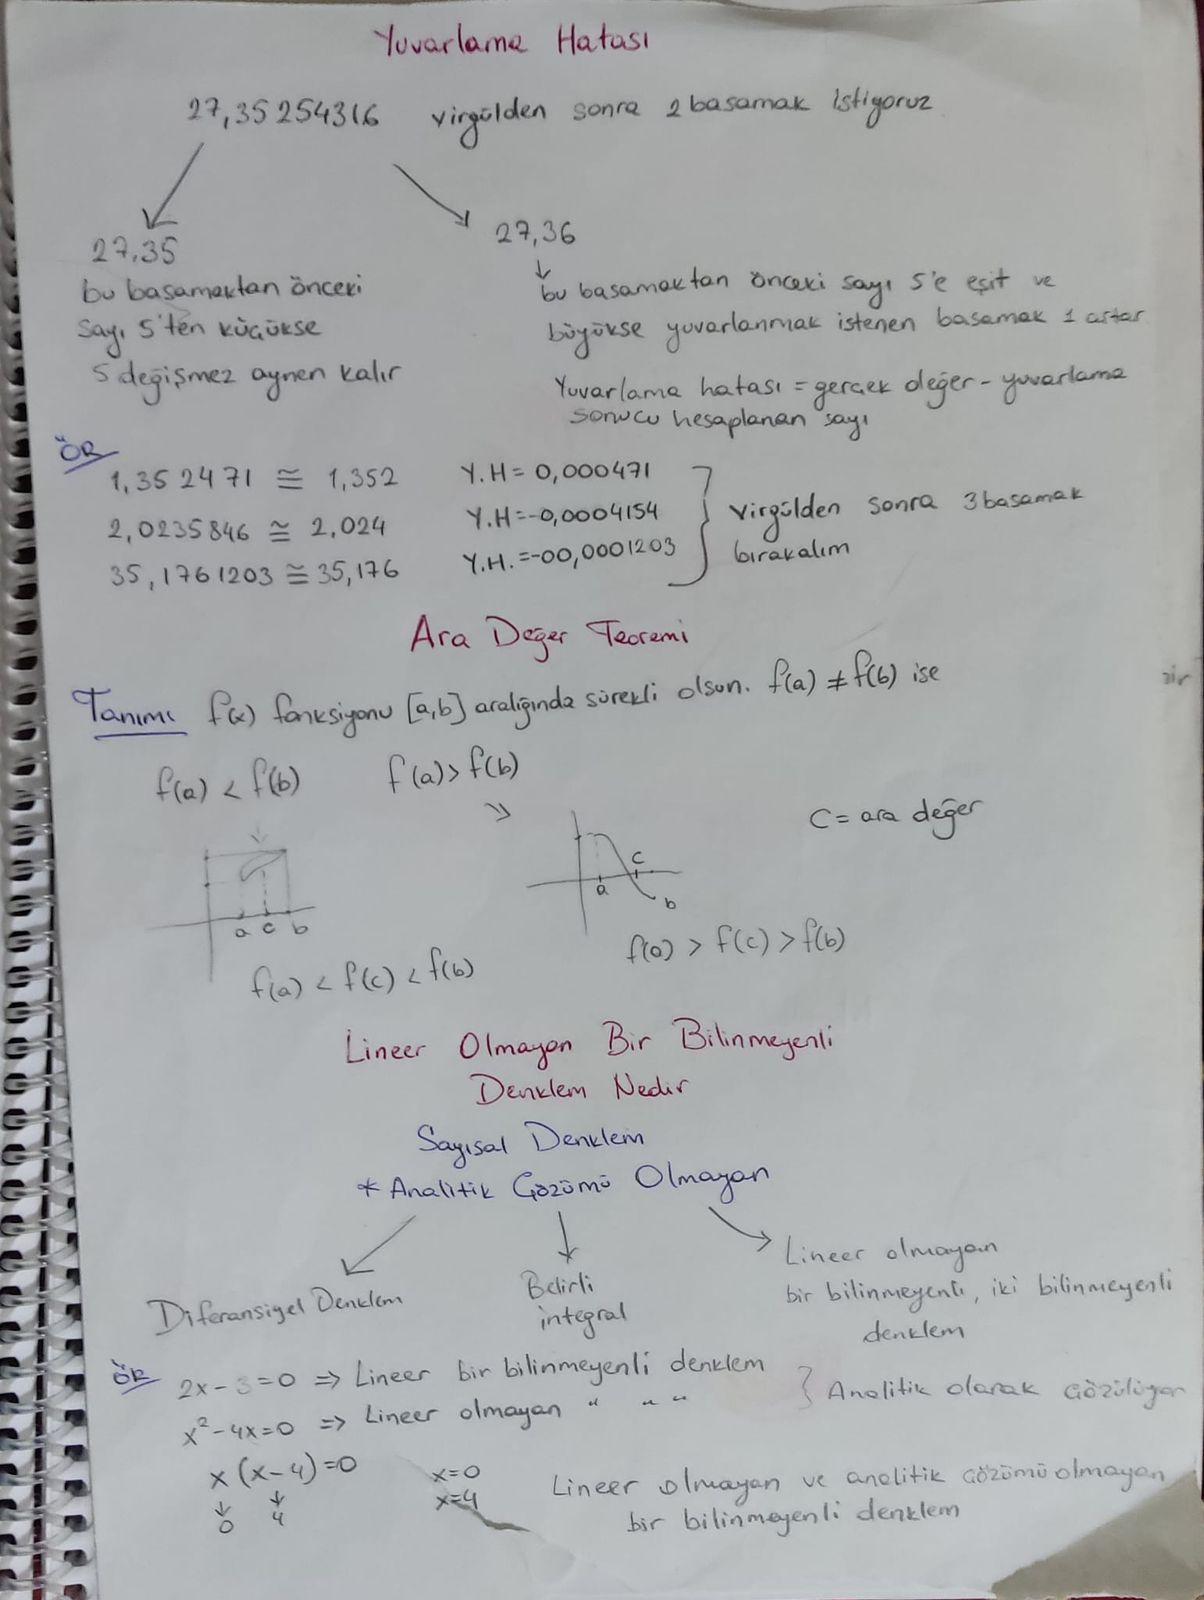 Yuvarlama Hatası
27,35254316 virgülden sonra 2 basamak istiyoruz
27,35
bu basamaktan önceki
sayı 5'ten küçükse
5 değişmez aynen kalır
27,36
bu basamaktan önceki sayı 5'e eşit ve
büyükse yuvarlanmak istenen basamak 1 artar
Yuvarlama hatası = gerçek değer - yuvarlama
sonucu hesaplanan sayı
ÖR
1,352471 ≅ 1,352 Y.H = 0,000471
2,0235846 ≅ 2,024 Y.H = -0,0004154
35,1761203 ≅ 35,176 Y.H. = -00,0001203
virgülden sonra 3 basamak
bırakalım
Ara Değer Teoremi
Tanımı f(x) fonksiyonu [a,b] aralığında sürekli olsun. f(a) ≠ f(b) ise
bir
f(a) < f(b) f(a) > f(b)
C = ara değer
a c b
a c b
f(a) < f(c) < f(b)
f(a) > f(c) > f(b)
Lineer Olmayan Bir Bilinmeyenli
Denklem Nedir
Sayısal Denklem
* Analitik Çözümü Olmayan
Diferansiyel Denklem
Belirli
integral
Lineer olmayan
bir bilinmeyenli, iki bilinmeyenli
denklem
ÖR
2x - 3 = 0 => Lineer bir bilinmeyenli denklem
x² - 4x = 0 => Lineer olmayan " " "
Analitik olarak çözülüyor
x (x - 4) = 0 x = 0
0 4 x = 4
Lineer olmayan ve analitik çözümü olmayan
bir bilinmeyenli denklem